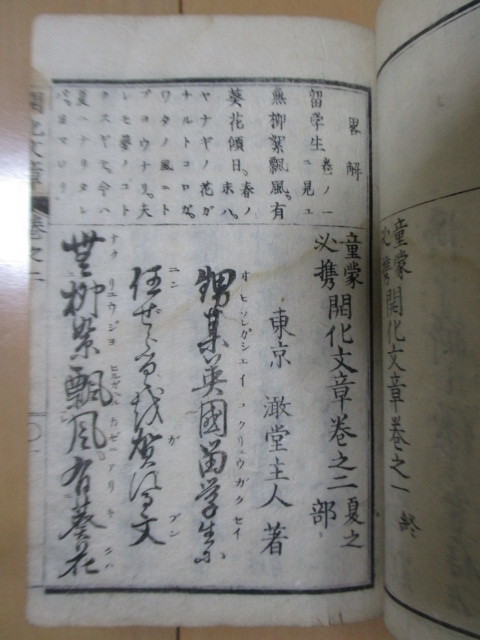 童蒙必携 開化文章巻之一 終
畧解
留学生 巻ノ一ニ見ユ
無柳絮飄風有
葵花傾日。春ノ末ハ
ヤナギノ花ガ
ナルトコロガ。
ワタノ風ニト
ブヨウナリ。夫
レモ夢ノコト
クスギテ。今ハ
夏ニナリタレ
童蒙必携 開化文章巻之二 夏之部
東京 澂堂主人 著
甥某英國留学生に
任ぜらるゝを賀する文
無柳絮飄風有葵花
開化文章 巻之二